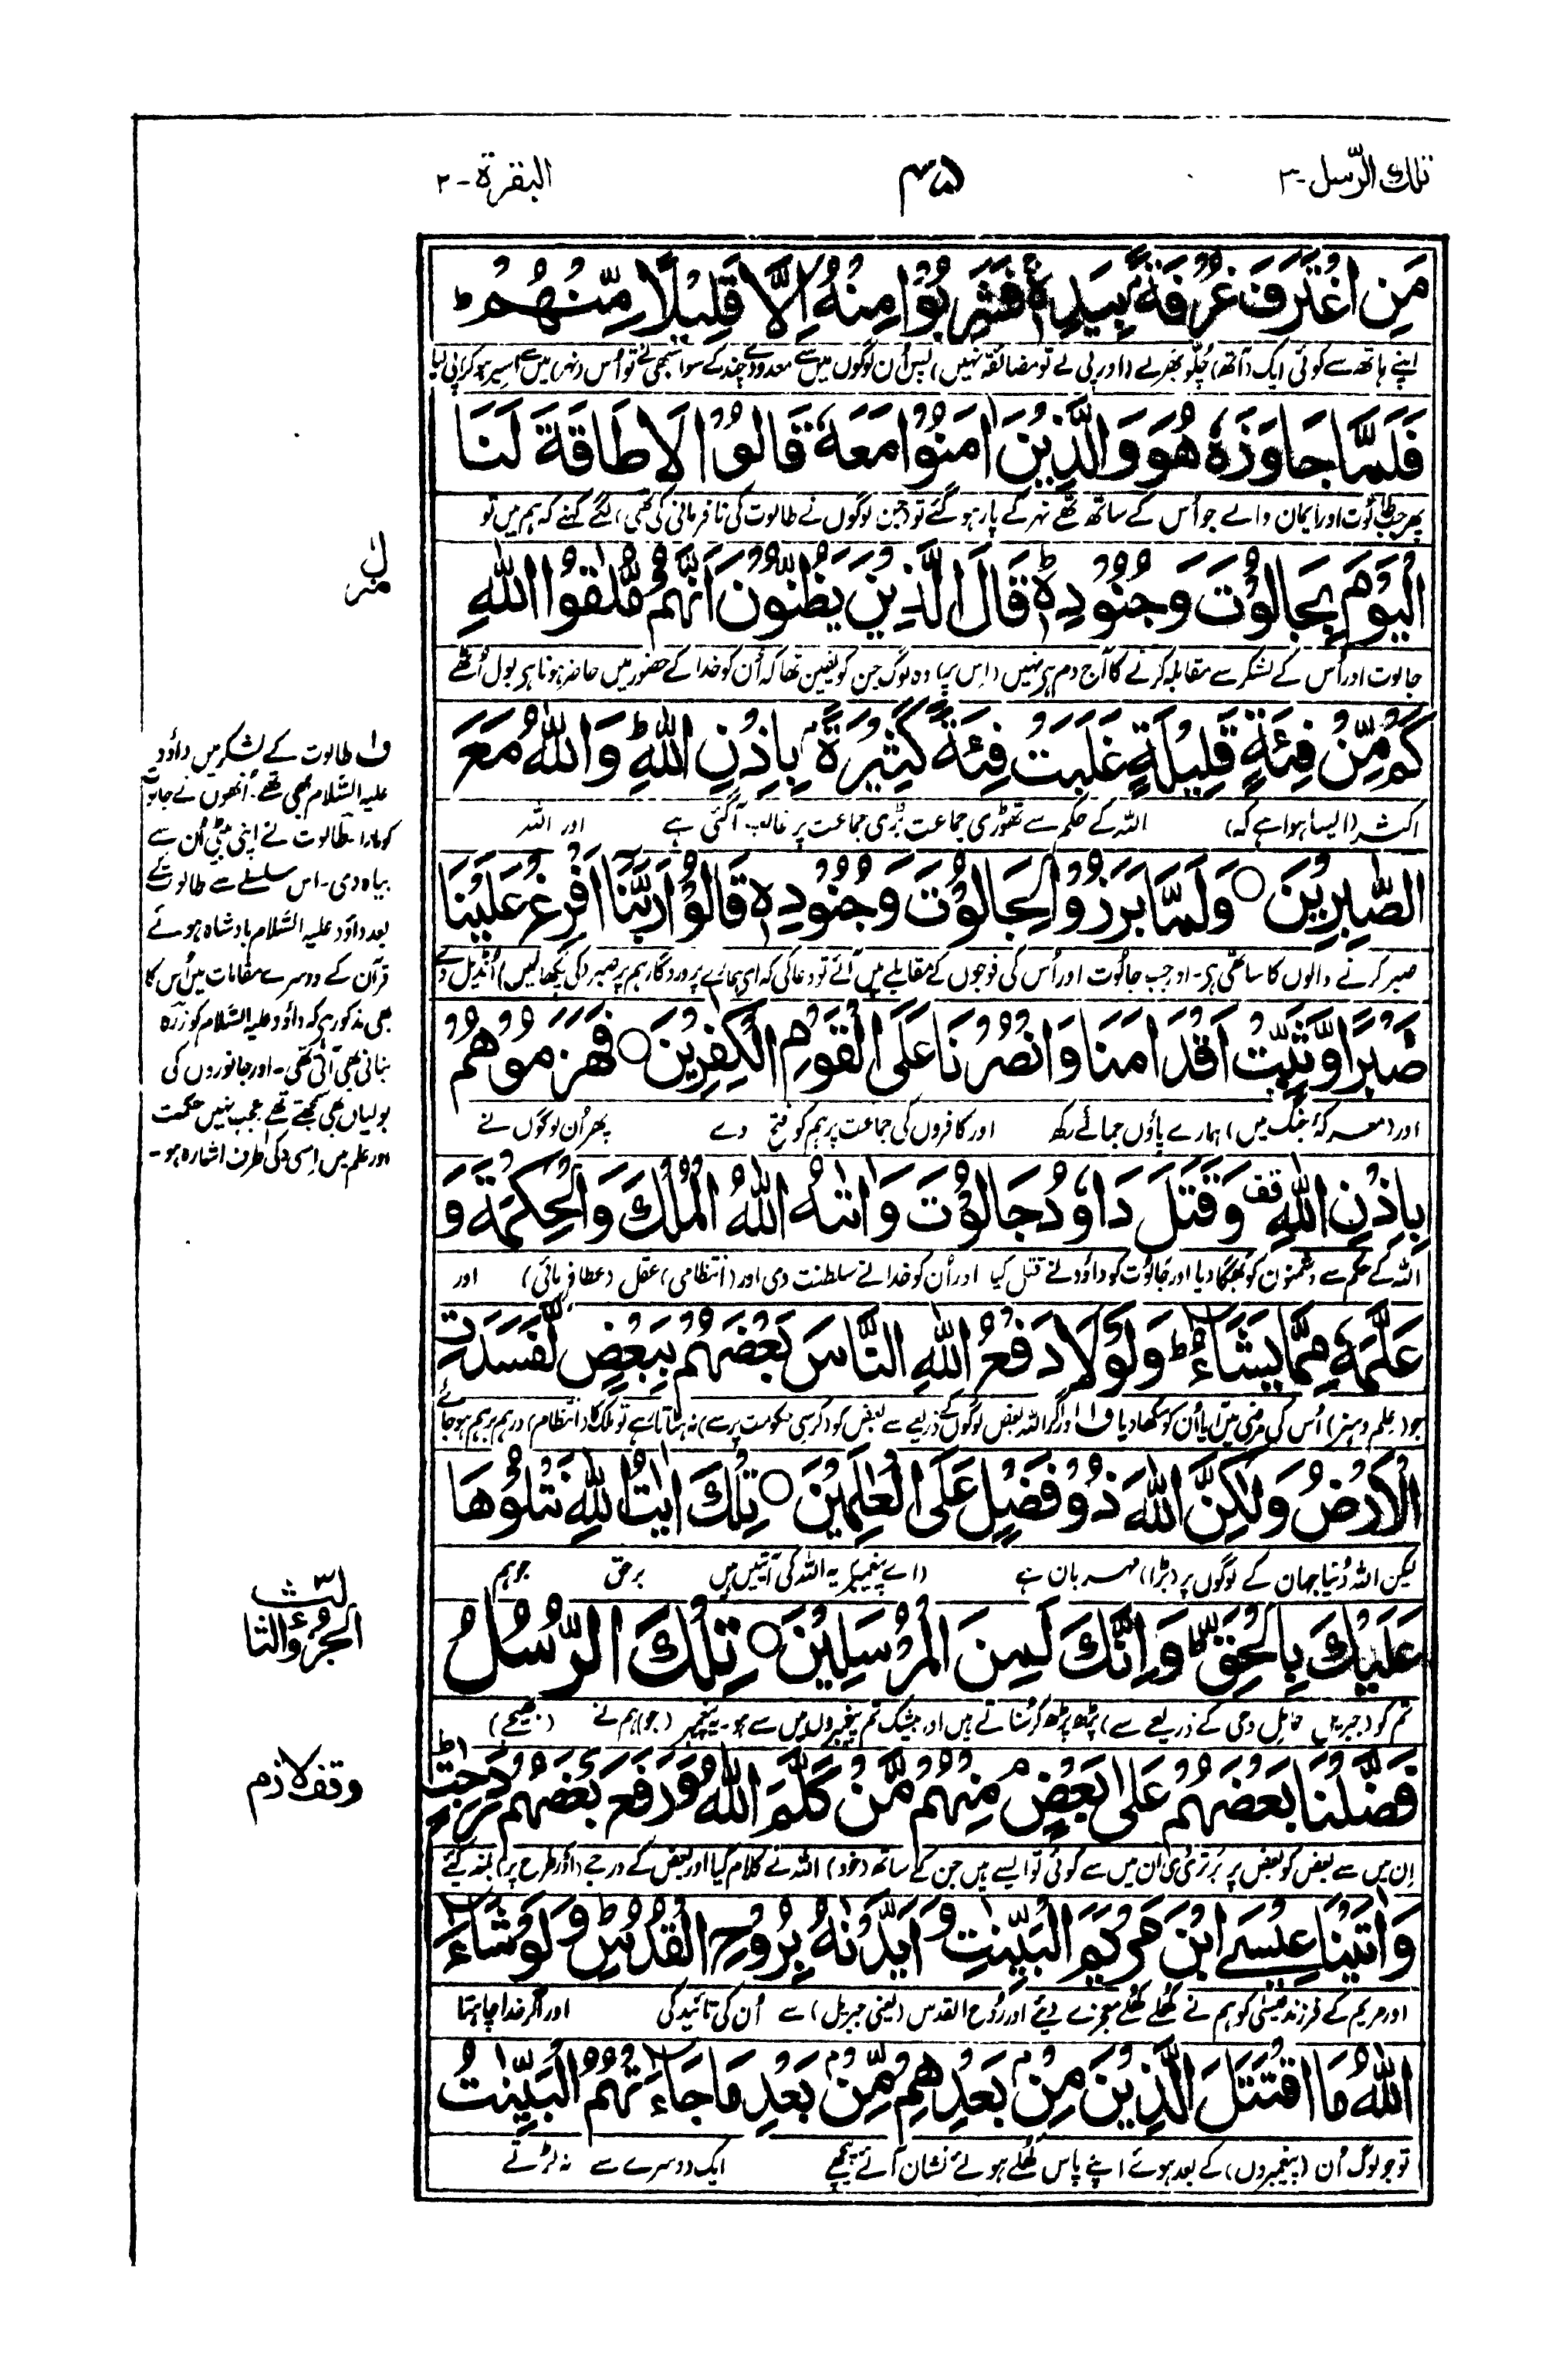 تلك الرّسل-۳
۴۵
البقرة-۲
مَنِ اغْتَرَفَ غُرْفَةًۢ بِيَدِهٖ ۚ فَشَرِبُوْا مِنْهُ اِلَّا قَلِيْلًا مِّنْهُمْ ؕ
اپنے ہاتھ سے کوئی ایک (آدھ) چُلّو بھر لے (اور پی لے تو مضائقہ نہیں) پس اُن لوگوں میں سے معدودے چند کے سوا سبھی نے تو اُس (نہر) میں سے سیر ہو کر پی لیا
فَلَمَّا جَاوَزَهٗ هُوَ وَالَّذِيْنَ اٰمَنُوْا مَعَهٗ ۙ قَالُوْا لَا طَاقَةَ لَنَا
پھر جب طالوت اور ایمان والے جو اُس کے ساتھ تھے نہر کے پار ہو گئے تو (جن لوگوں نے طالوت کی نافرمانی کی تھی) لگے کہنے کہ ہم میں تو
الْيَوْمَ بِجَالُوْتَ وَجُنُوْدِهٖ ؕ قَالَ الَّذِيْنَ يَظُنُّوْنَ اَنَّهُمْ مُّلٰقُوا اللّٰهِ
جالوت اور اُس کے لشکر سے مقابلہ کرنے کا آج دم ہی نہیں (اِس پر) وہ لوگ جن کو یقین تھا کہ اُن کو خدا کے حضور میں حاضر ہونا ہی بول اُٹھے
كَمْ مِّنْ فِئَةٍ قَلِيْلَةٍ غَلَبَتْ فِئَةً كَثِيْرَةًۢ بِاِذْنِ اللّٰهِ ؕ وَاللّٰهُ مَعَ
اکثر (ایسا ہوا ہے کہ) اللہ کے حکم سے تھوڑی جماعت بڑی جماعت پر غالب آگئی ہے اور اللہ
الصّٰبِرِيْنَ ○ وَلَمَّا بَرَزُوْا لِجَالُوْتَ وَجُنُوْدِهٖ قَالُوْا رَبَّنَا اَفْرِغْ عَلَيْنَا
صبر کرنے والوں کا ساتھی ہی۔ اور جب جالوت اور اُس کی فوجوں کے مقابلے میں آئے تو دعا کی کہ ای ہمارے پروردگار ہم پر صبر (کی پکھالیں) اُنڈیل دے
صَبْرًا وَّثَبِّتْ اَقْدَامَنَا وَانْصُرْنَا عَلَى الْقَوْمِ الْكٰفِرِيْنَ ○ فَهَزَمُوْهُمْ
اور (معرکۂ جنگ میں) ہمارے پاؤں جمائے رکھ اور کافروں کی جماعت پر ہم کو فتح دے پھر اُن لوگوں نے
بِاِذْنِ اللّٰهِ ۫ قف وَقَتَلَ دَاوٗدُ جَالُوْتَ وَاٰتٰىهُ اللّٰهُ الْمُلْكَ وَالْحِكْمَةَ وَ
اللہ کے حکم سے دشمنوں کو بھگا دیا اور جالوت کو داؤد نے قتل کیا اور اُن کو خدا نے سلطنت دی اور (انتظامی) عقل (عطا فرمائی) اور
عَلَّمَهٗ مِمَّا يَشَآءُ ؕ وَلَوْلَا دَفْعُ اللّٰهِ النَّاسَ بَعْضَهُمْ بِبَعْضٍ لَّفَسَدَتِ
جو (علم وہنر) اُس کی مرضی میں آیا اُن کو سکھا دیا ف۱ اور اگر اللہ بعض لوگوں کے ذریعے سے بعض کو (کرسی حکومت پر سے) نہ ہٹاتا رہے تو ملک (کا انتظام) درہم برہم ہو جائے
الْاَرْضُ وَلٰكِنَّ اللّٰهَ ذُوْ فَضْلٍ عَلَى الْعٰلَمِيْنَ ○ تِلْكَ اٰيٰتُ اللّٰهِ نَتْلُوْهَا
لیکن اللہ دُنیا جہان کے لوگوں پر (بڑا) مہربان ہے (اے پیغمبر) یہ اللہ کی آیتیں ہیں برحق جو ہم
عَلَيْكَ بِالْحَقِّ ؕ وَاِنَّكَ لَمِنَ الْمُرْسَلِيْنَ ○ تِلْكَ الرُّسُلُ
تم کو (جبریل حامِل وحی کے ذریعے سے) پڑھ پڑھ کر سُناتے ہیں اور بیشک تم پیغمبروں میں سے ہو۔ یہ پیغمبر (جو) ہم نے (بھیجے)
فَضَّلْنَا بَعْضَهُمْ عَلٰى بَعْضٍ ۘ مِنْهُمْ مَّنْ كَلَّمَ اللّٰهُ وَرَفَعَ بَعْضَهُمْ دَرَجٰتٍ ؕ
اِن میں سے بعض کو بعض پر برتری دی اُن میں سے کوئی تو ایسے ہیں جن کے ساتھ (خود) اللہ نے کلام کیا اور بعض کے درجے (اَور طرح پر) بلند کیے
وَاٰتَيْنَا عِيْسَى ابْنَ مَرْيَمَ الْبَيِّنٰتِ وَاَيَّدْنٰهُ بِرُوْحِ الْقُدُسِ ؕ وَلَوْ شَآءَ
اور مریم کے فرزند عیسیٰ کو ہم نے کُھلے کُھلے معجزے دیئے اور رُوح القدس (یعنی جبریل) سے اُن کی تائید کی اور اگر خدا چاہتا
اللّٰهُ مَا اقْتَتَلَ الَّذِيْنَ مِنْۢ بَعْدِهِمْ مِّنْۢ بَعْدِ مَا جَآءَتْهُمُ الْبَيِّنٰتُ
تو جو لوگ اُن (پیغمبروں) کے بعد ہوئے اپنے پاس کُھلے ہوئے نشان آئے پیچھے ایک دوسرے سے نہ لڑتے
ف۱ طالوت کے لشکر میں داؤد
علیہ السّلام بھی تھے۔ اُنھوں نے جالوت
کو مارا۔ طالوت نے اپنی بیٹی اُن سے
بیاہ دی۔ اس سلسلے سے طالوت کے
بعد داؤد علیہ السّلام بادشاہ ہوئے
قرآن کے دوسرے مقامات میں اُس کا
بھی مذکور ہی کہ داؤد علیہ السّلام کو زرہ
بنانی بھی آتی تھی۔ اور جانوروں کی
بولیاں بھی سمجھتے تھے عجب نہیں حکمت
اور علم میں اِسی کی طرف اشارہ ہو۔
الجزؤ الثالث
وقف لازم